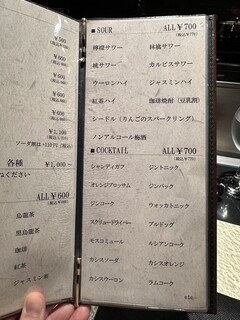 ¥500
(税込¥550)
¥600
(税込¥660)
¥600
(税込¥660)
¥600
(税込¥660)
¥600
(税込¥660)
¥1,100
ソーダ割は+110円(税込)
各種 ¥1,000～
ねください
ALL¥600
(税込¥660)
烏龍茶
黒烏龍茶
珈琲
紅茶
ジャスミン茶
■ SOUR ALL¥700
(税込¥770)
檸檬サワー 林檎サワー
桃サワー カルピスサワー
ウーロンハイ ジャスミンハイ
紅茶ハイ 珈琲焼酎（豆乳割）
シードル（りんごのスパークリング）
ノンアルコール梅酒
■ COCKTAIL ALL¥700
(税込¥770)
シャンディガフ ジントニック
オレンジブロッサム ジンバック
ジンコーク ウォッカトニック
スクリュードライバー ブルドッグ
モスコミュール ルシアンコーク
カシスソーダ カシスオレンジ
カシスウーロン ラムコーク
etc…